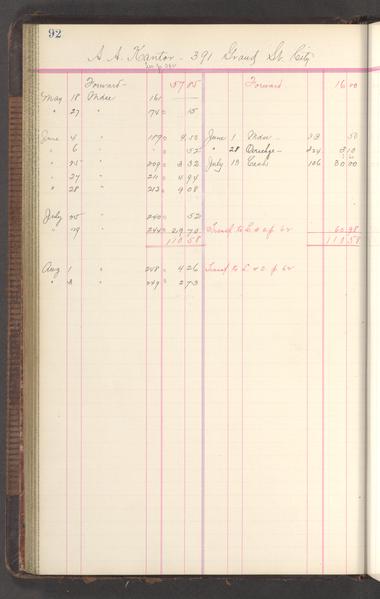 92
A. A. Kantor - 391 Grand St. City
Forward - 57 85 Forward 16 00
May 18 Mdse 161
" 27 " 174 45
June 4 " 189 9 50 June 1 Mdse 23 50
" 6 " " 52 " 28 334 3 10
" 25 " 209 3 32 July 13 Cash 106 30 00
" 27 " 211 4 94
" 28 " 212 9 08
July 25 " 240 52
" 29 " 244 Transf to L & O p 62 60 98
110 58 110 58
Aug 1 " 248 4 26 Transf to L & O p 62
" 2 " 249 2 73